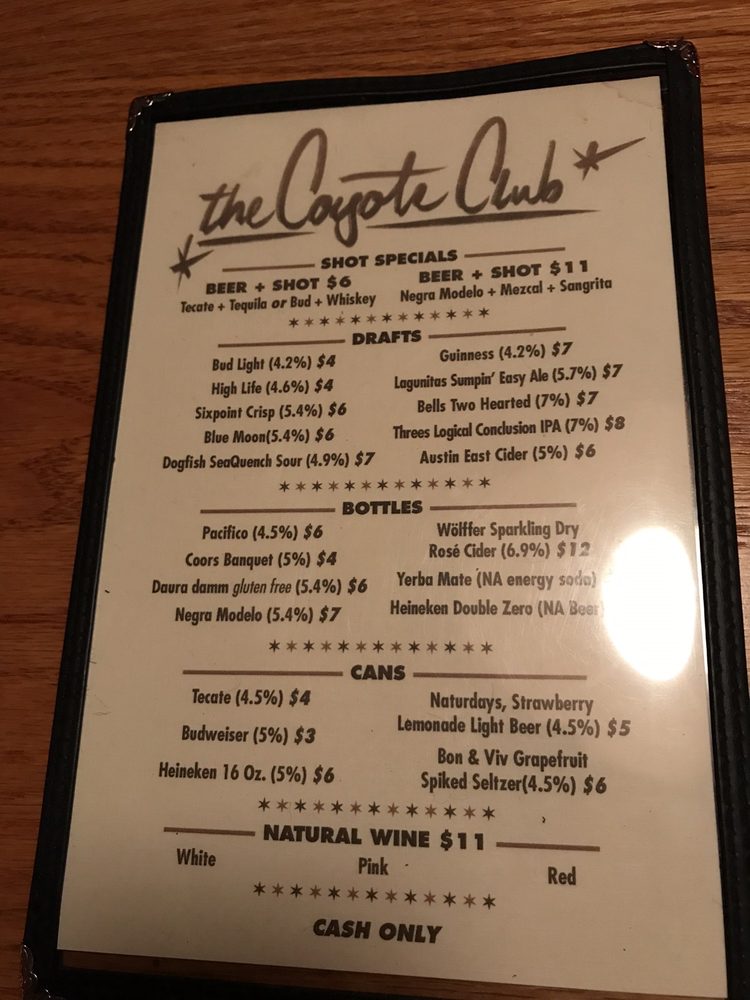 the Coyote Club
SHOT SPECIALS
BEER + SHOT $6
Tecate + Tequila or Bud + Whiskey
BEER + SHOT $11
Negra Modelo + Mezcal + Sangrita
DRAFTS
Bud Light (4.2%) $4
High Life (4.6%) $4
Sixpoint Crisp (5.4%) $6
Blue Moon(5.4%) $6
Dogfish SeaQuench Sour (4.9%) $7
Guinness (4.2%) $7
Lagunitas Sumpin' Easy Ale (5.7%) $7
Bells Two Hearted (7%) $7
Threes Logical Conclusion IPA (7%) $8
Austin East Cider (5%) $6
BOTTLES
Pacifico (4.5%) $6
Coors Banquet (5%) $4
Daura damm gluten free (5.4%) $6
Negra Modelo (5.4%) $7
Wölffer Sparkling Dry
Rosé Cider (6.9%) $12
Yerba Mate (NA energy soda)
Heineken Double Zero (NA Beer
CANS
Tecate (4.5%) $4
Budweiser (5%) $3
Heineken 16 Oz. (5%) $6
Naturdays, Strawberry
Lemonade Light Beer (4.5%) $5
Bon & Viv Grapefruit
Spiked Seltzer(4.5%) $6
NATURAL WINE $11
White
Pink
Red
CASH ONLY